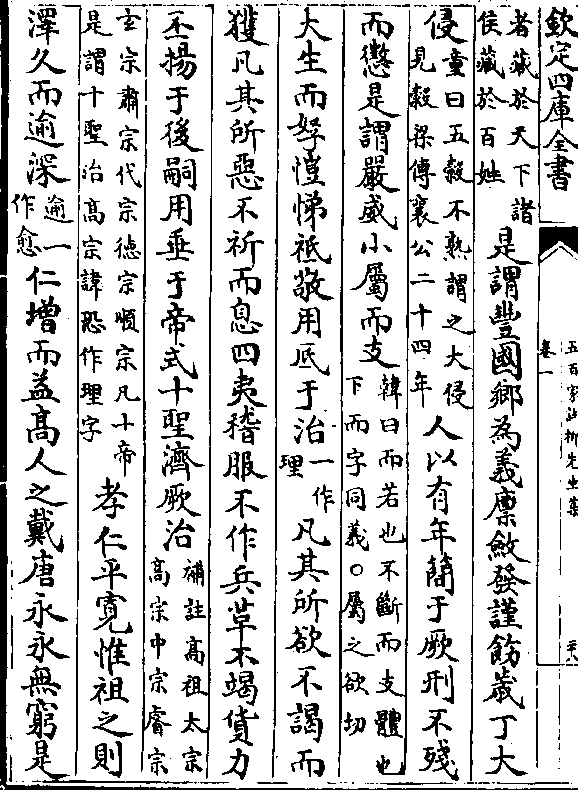 欽定四庫全書
五百家註柳先生集
卷一
者藏於天下諸
侯藏於百姓
是謂豐國鄉為義廩斂發謹飭歳丁大
侵
童曰五榖不熟謂之大侵
見榖梁傳襄公二十四年
人以有年簡于厥刑不殘
而懲是謂嚴威小屬而支
韓曰而若也不斷而支體也
下而字同義○屬之欲切
大生而孥愷悌祗敬用底于治
一作
理
凡其所欲不謁而
獲凡其所惡不祈而息四夷稽服不作兵革不竭貨力
丕揚于後嗣用垂于帝式十聖濟厥治
補註高祖太宗
高宗中宗睿宗
玄宗肅宗代宗德宗順宗凡十帝
是謂十聖治高宗諱恐作理字
孝仁平寛惟祖之則
澤久而逾深
逾一
作愈
仁增而益髙人之戴唐永永無窮是